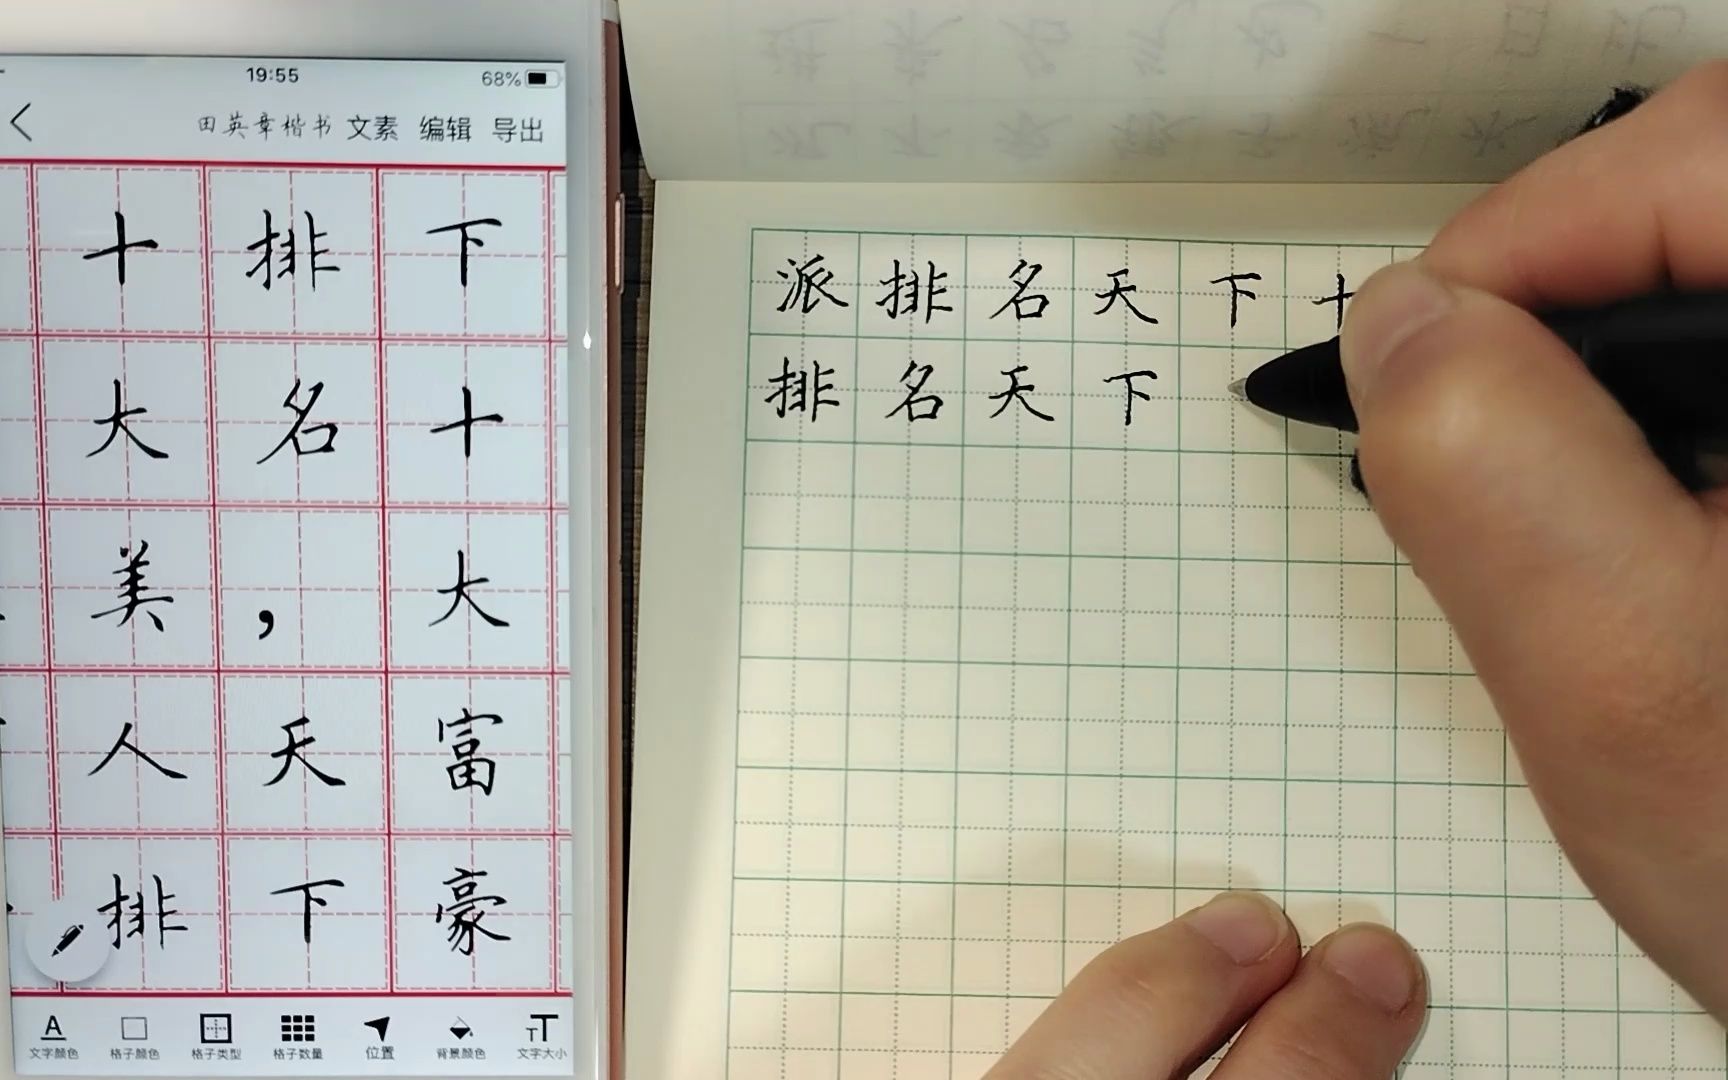 19:55 68%
田英章楷书 文素 编辑 导出
十 排 下
大 名 十
美 , 大
人 天 富
排 下 豪
文字颜色 格子颜色 格子类型 格子数量 位置 背景颜色 文字大小
派排名天下十
排名天下